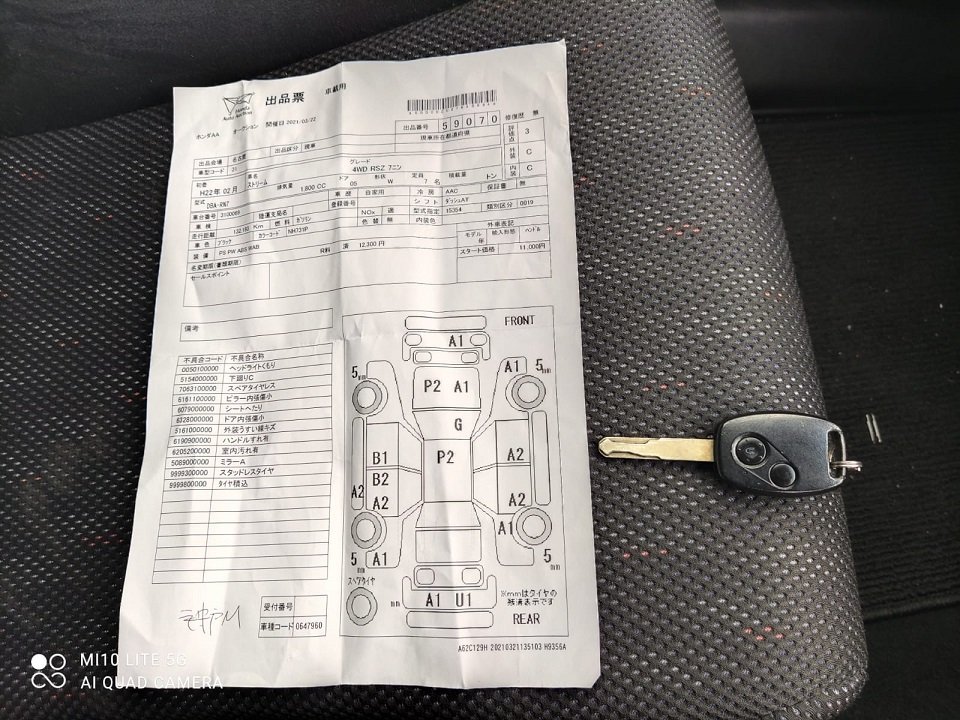 出品票 車載用
Honda
Auto Auction
ホンダAA オークション 開催日 2021/03/22
出品番号 59070 修復歴 無
現車所在都道府県
評価点 3
外装 C
内装 C
出品会場 名古屋 出品区分 現車
車型コード 21
初登 車名 グレード ドア 形状 定員 積載量
H22年 02月 ストリーム 排気量 1,800 CC 4WD RSZ 7ニン 05 W 7 名 トン
型式 DBA-RN7 車歴 自家用 冷房 AAC 保証書 無
車台番号 3100069 陸運支局名 登録番号 シフト ダッシュAT
車検 NOx 適 型式指定 15354 類別区分 0019
走行距離 132,182 Km 燃料 ガソリン 色替 無 内装色
車色 ブラック カラーコード NH731P
装備 PS PW ABS WAB R料 済 12,300 円
外車表記
モデル年 輸入形態 ハンドル
スタート価格 11,000円
名変期限(書類期限)
セールスポイント
備考
不具合コード 不具合名称
0050100000 ヘッドライトくもり
5154000000 下廻りC
7063100000 スペアタイヤレス
6161100000 ピラー内張傷小
6079000000 シートへたり
6328000000 ドア内張傷小
5161000000 外装うすい線キズ
6190900000 ハンドルすれ有
6205200000 室内汚れ有
5089000000 ミラーA
9999300000 スタッドレスタイヤ
9999800000 タイヤ積込
FRONT
A1
5mm A1 5mm
P2 A1
G
P2
B1 A2
B2
A2 A2 A2
A1
5mm A1 5mm
スペアタイヤ
mm
A1 U1
※mmはタイヤの
残溝表示です
REAR
受付番号
車種コード 0647960
A62C129H 20210321135103 H9356A
MI10 LITE 5G
AI QUAD CAMERA